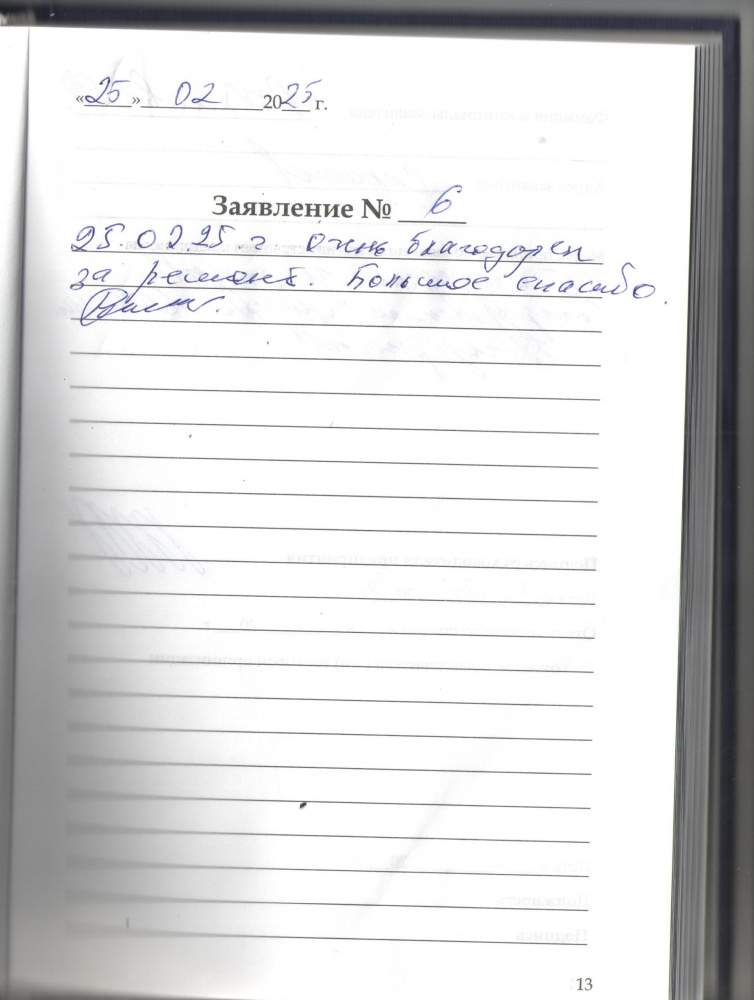 «25» 02 2025 г.
Заявление № 6
25.02.25 г. очень благодорен
за ремонт. Большое спасибо.
13